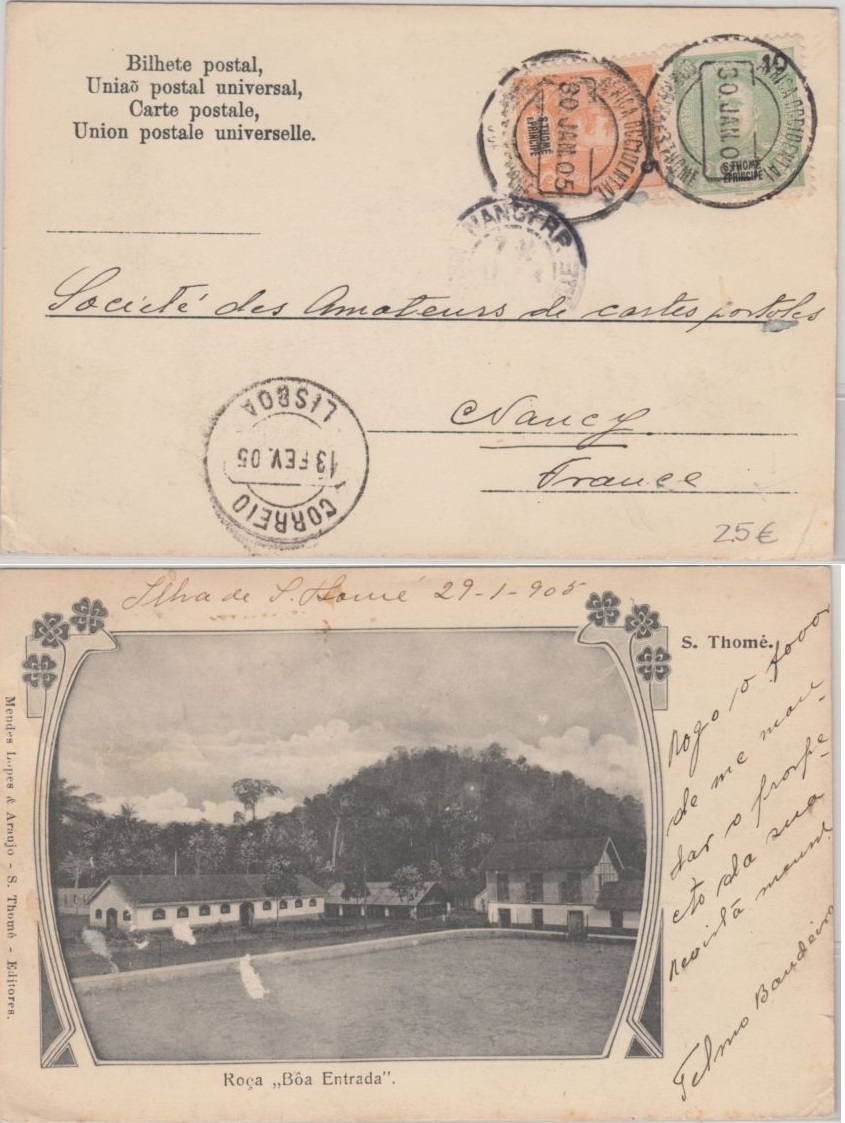 Bilhete postal,
Uniaõ postal universal,
Carte postale,
Union postale universelle.
5
S. THOMÉ
E PRINCIPE
30 JAN. 05
AFRICA OCCIDENTAL
10
S. THOMÉ
E PRINCIPE
30 JAN. 05
AFRICA OCCIDENTAL
S. THOMÉ
NANCY
Société des Amateurs de cartes postales
Nancy
France
CORREIO
13 FEV. 05
LISBOA
25€
Ilha de S. Thomé 29-1-905
S. Thomé.
Rogo o favor
de me man-
dar o prospe-
cto da sua
revista
Telmo Bandeira
Mendes Lopes & Araujo - S. Thomé - Editores.
Roça „Bôa Entrada".